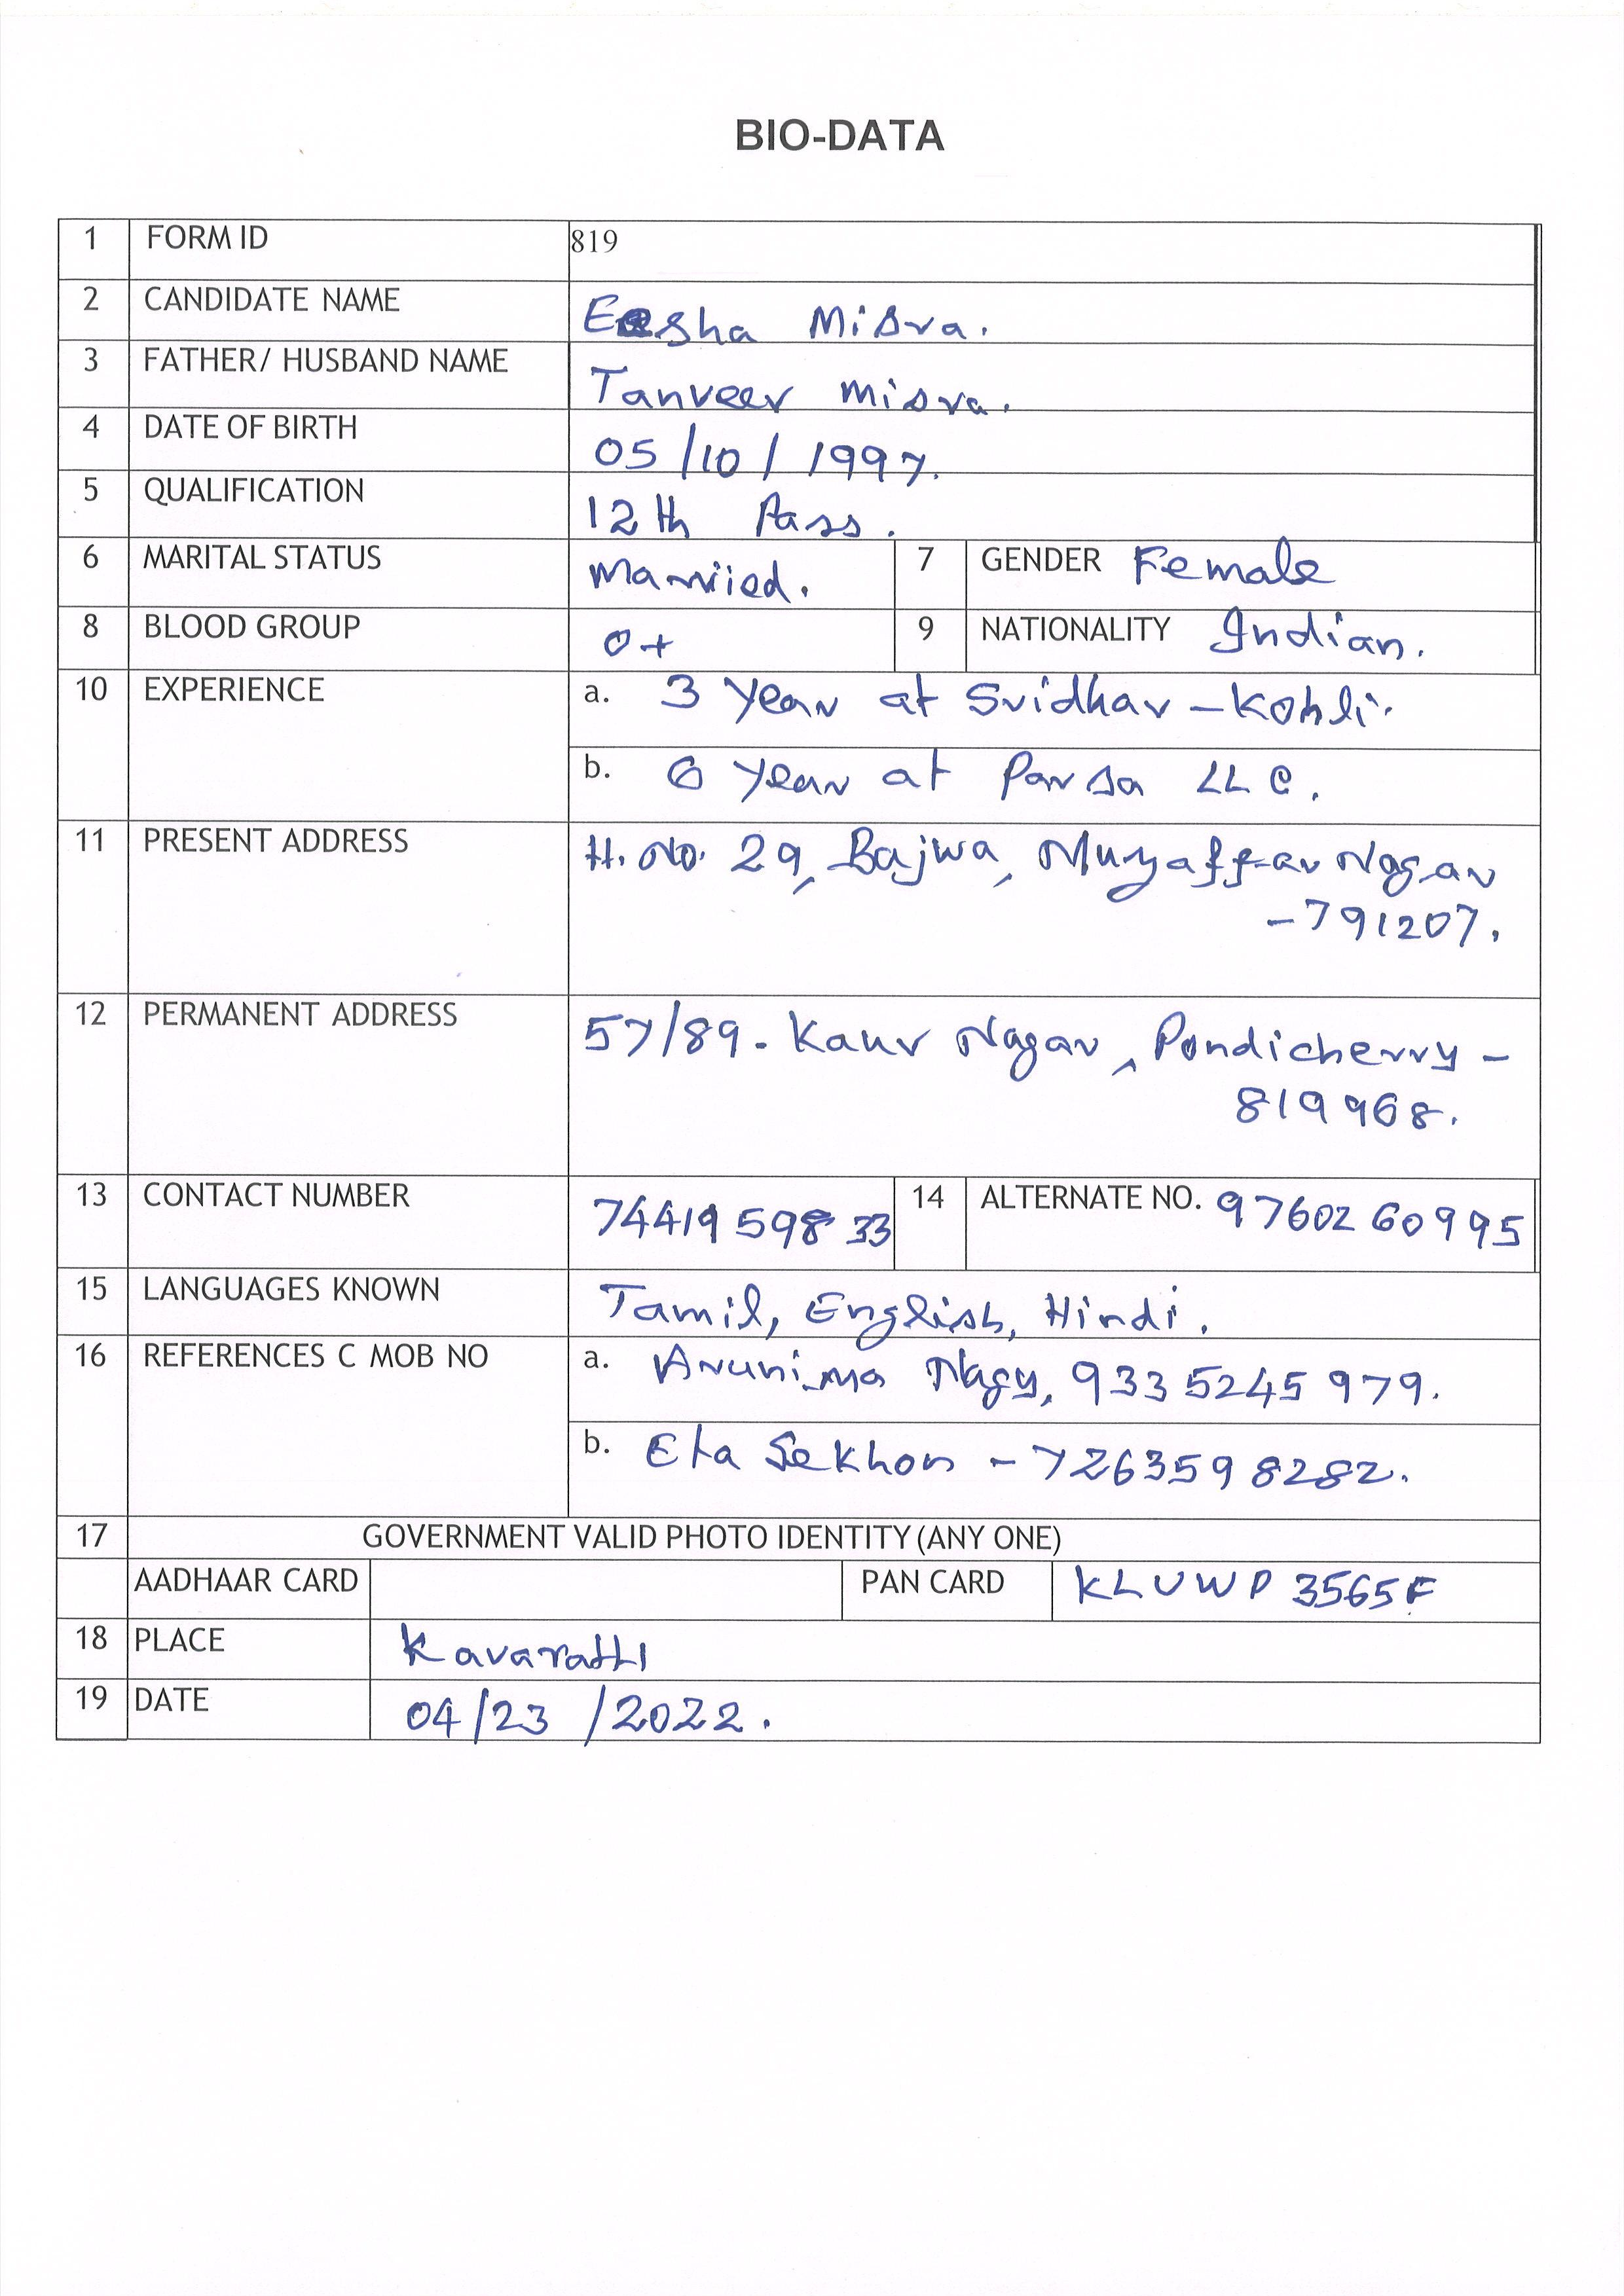 BIO-DATA
1 FORM ID 819
2 CANDIDATE NAME Eesha Misra.
3 FATHER/ HUSBAND NAME Tanveer Misra.
4 DATE OF BIRTH 05/10/1997.
5 QUALIFICATION 12th Pass.
6 MARITAL STATUS Married. 7 GENDER Female
8 BLOOD GROUP O+ 9 NATIONALITY Indian.
10 EXPERIENCE a. 3 Year at Sridhar-Kohli.
b. 6 Year at Parsa LLC.
11 PRESENT ADDRESS H. No. 29, Bajwa, Muzaffar Nagar
-791207.
12 PERMANENT ADDRESS 57/89. Kaur Nagar, Pondicherry -
819968.
13 CONTACT NUMBER 74419 598 33 14 ALTERNATE NO. 97602 60995
15 LANGUAGES KNOWN Tamil, English, Hindi.
16 REFERENCES C MOB NO a. Arunima Nagy, 933 5245 979.
b. Eta Sekhon - 7263598282.
17 GOVERNMENT VALID PHOTO IDENTITY (ANY ONE)
AADHAAR CARD PAN CARD KLUWP 3565F
18 PLACE Kavaratti
19 DATE 04/23/2022.